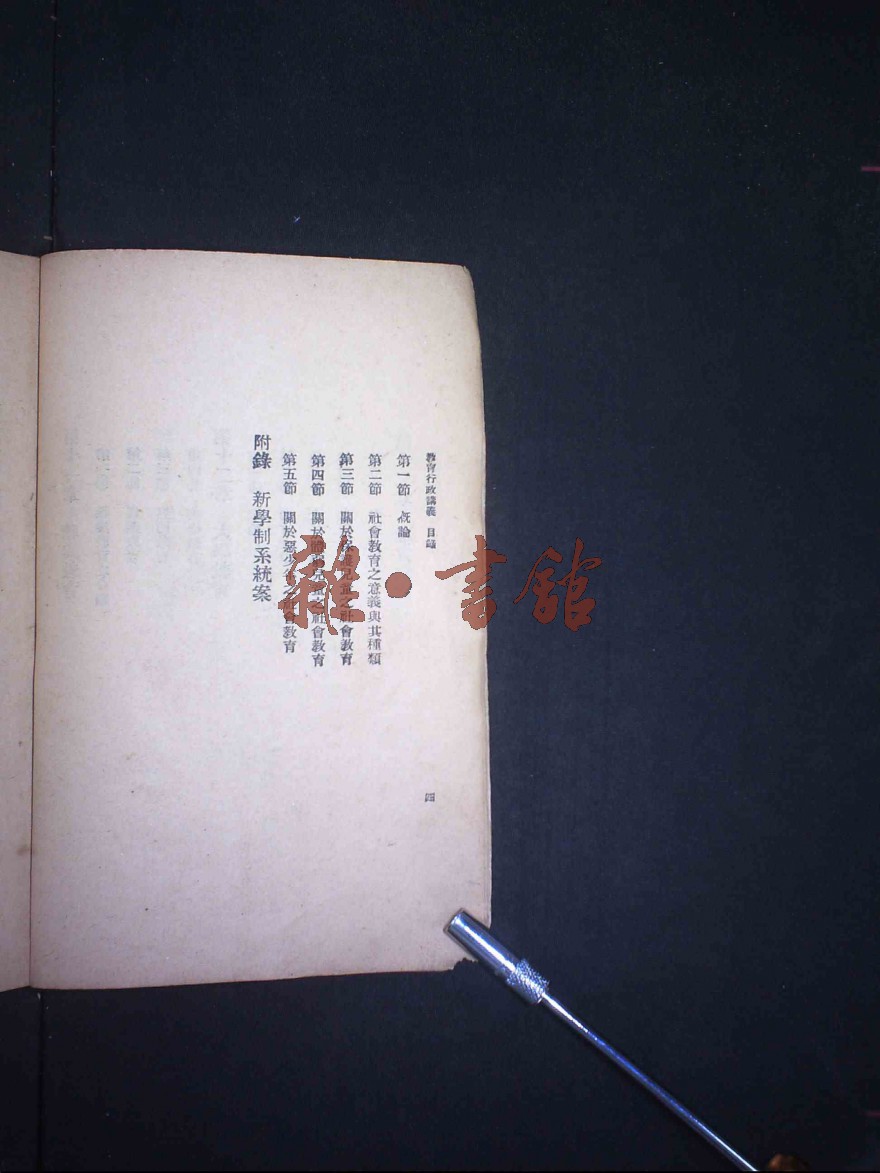 教育行政講義 目錄
第一節 概論
第二節 社會教育之意義與其種類
第三節 關於兒童之社會教育
第四節 關於兒童之社會教育
第五節 關於惡少年之社會教育
附錄 新學制系統案
四
雜·書館